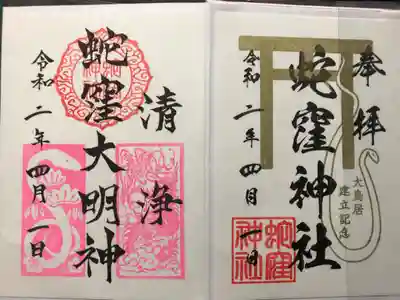 奉拝
蛇窪神社
令和二年四月一日
大鳥居
建立記念
蛇窪
神社
清浄
蛇窪大明神
令和二年四月一日